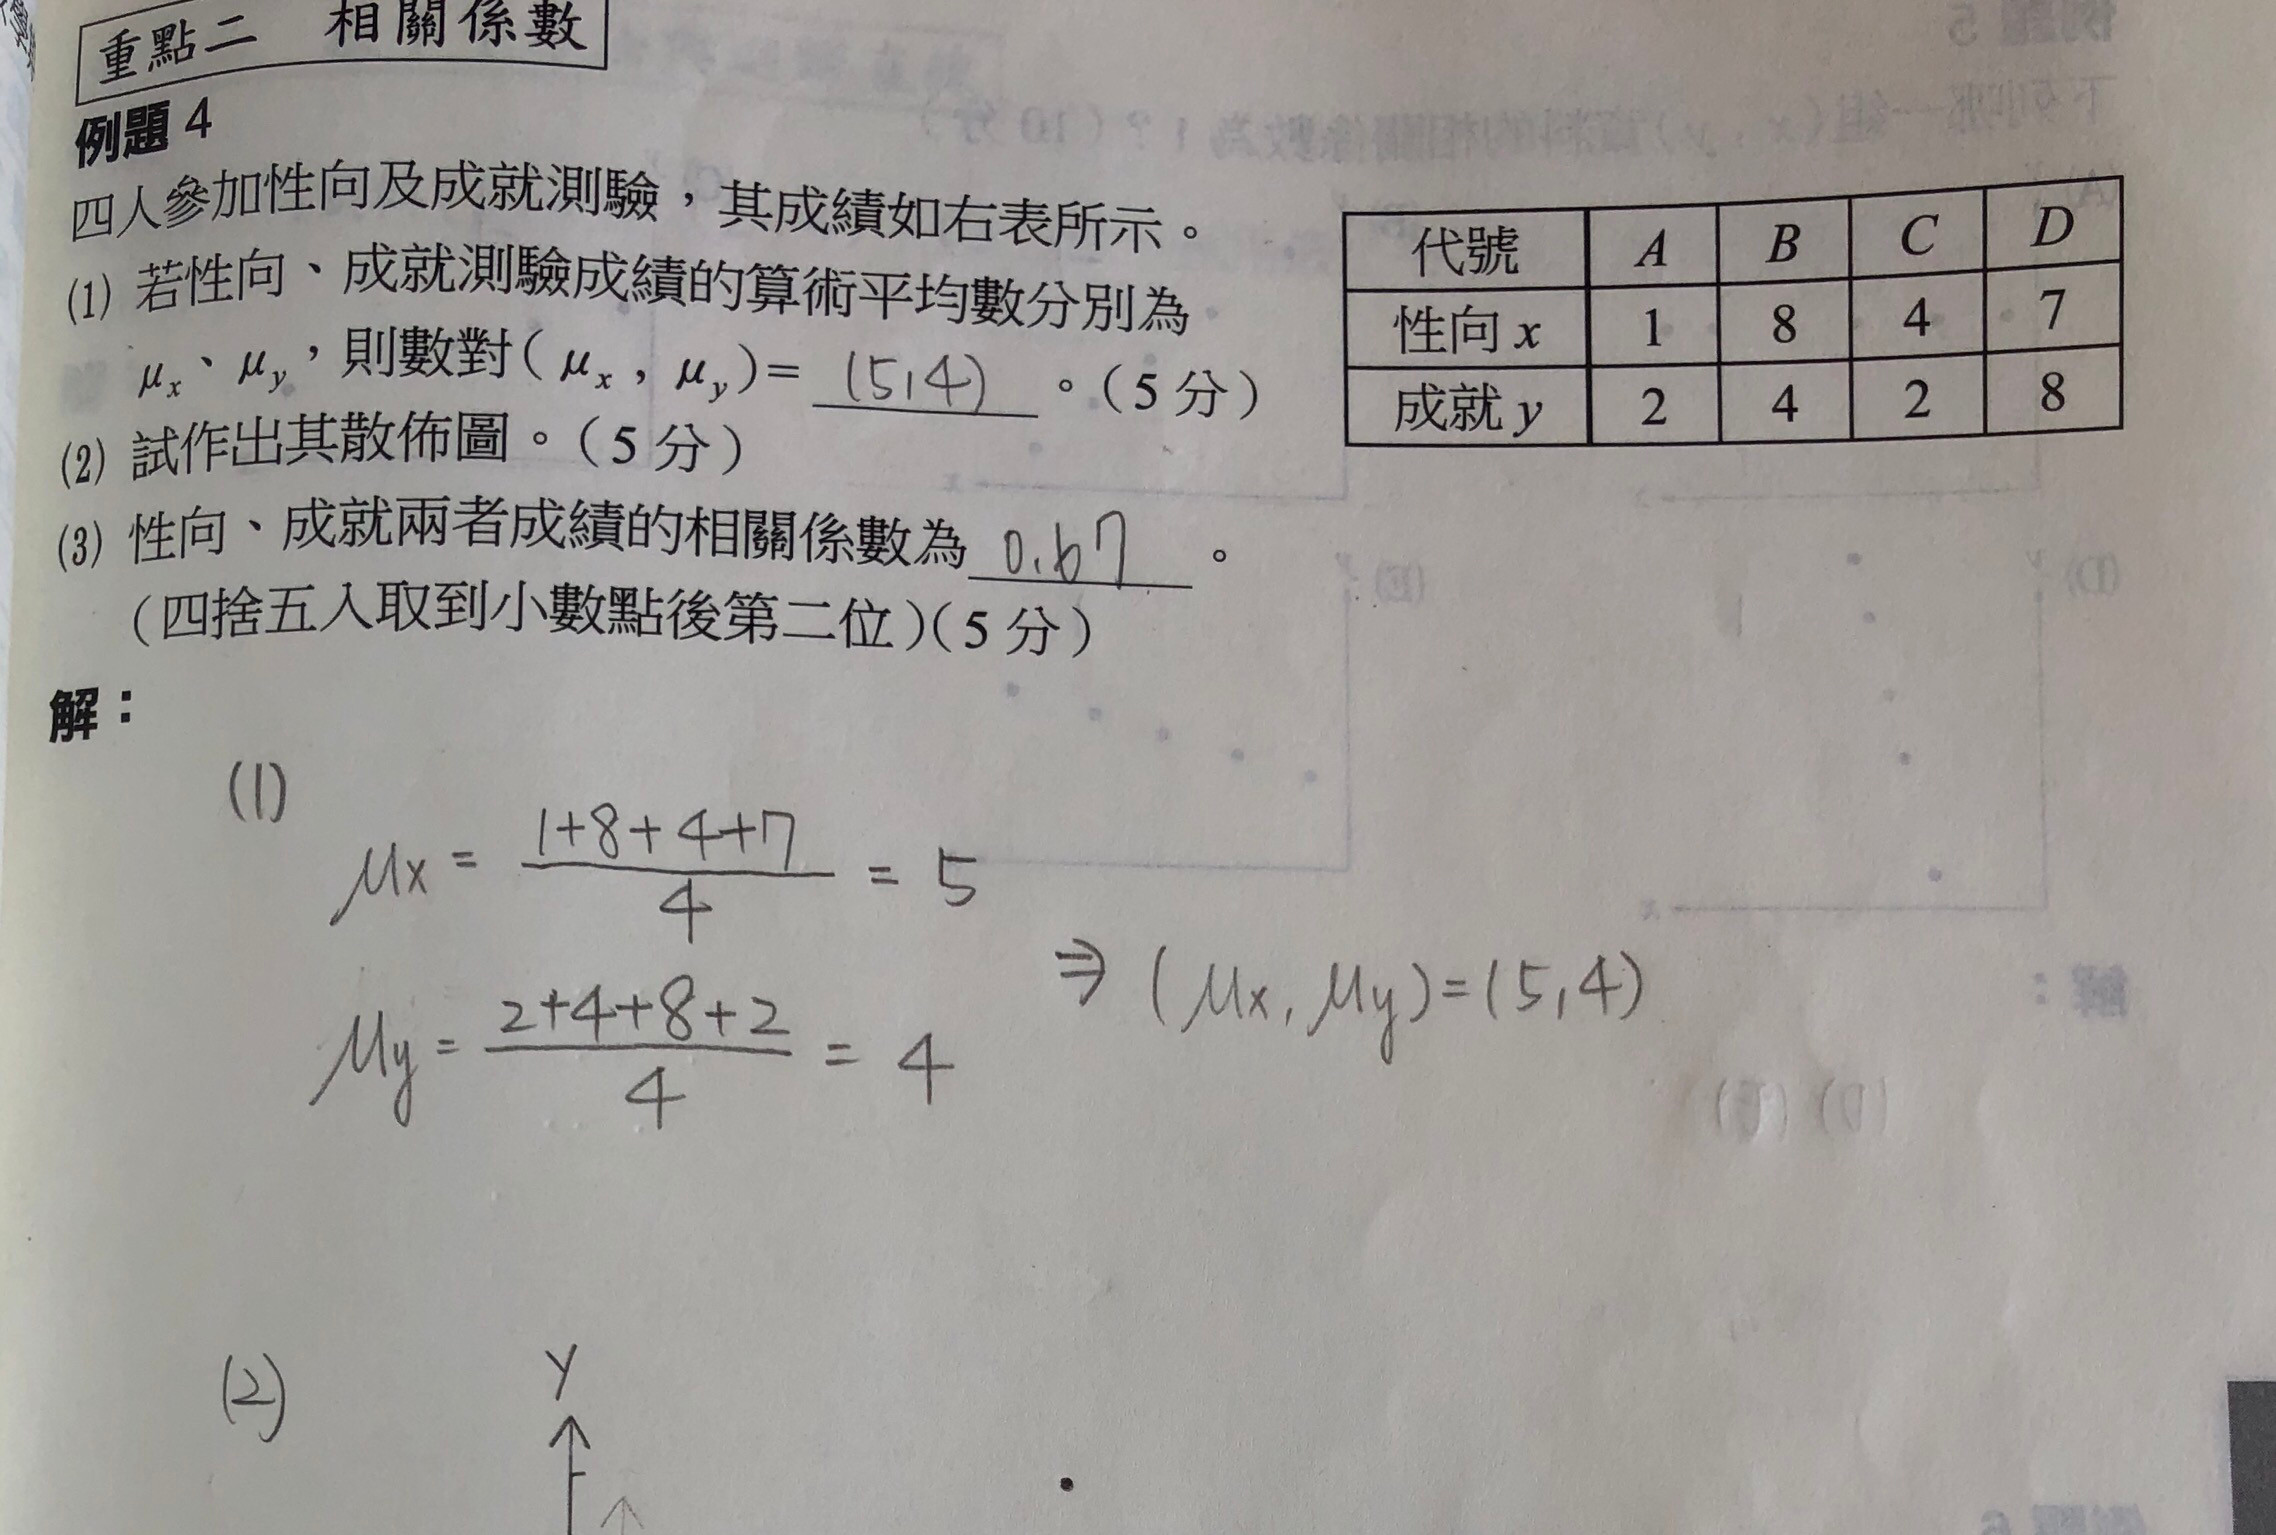 重點二 相關係數
例題 4
四人參加性向及成就測驗，其成績如右表所示。
(1) 若性向、成就測驗成績的算術平均數分別為
μx、μy，則數對(μx，μy)= (5,4) 。(5 分)
(2) 試作出其散佈圖。(5 分)
(3) 性向、成就兩者成績的相關係數為 0.67 。
(四捨五入取到小數點後第二位)(5 分)
代號 A B C D
性向 x 1 8 4 7
成就 y 2 4 2 8
解：
(1)
μx = 1+8+4+7 / 4 = 5
μy = 2+4+8+2 / 4 = 4
⇒ (μx, μy)=(5,4)
(2)
y